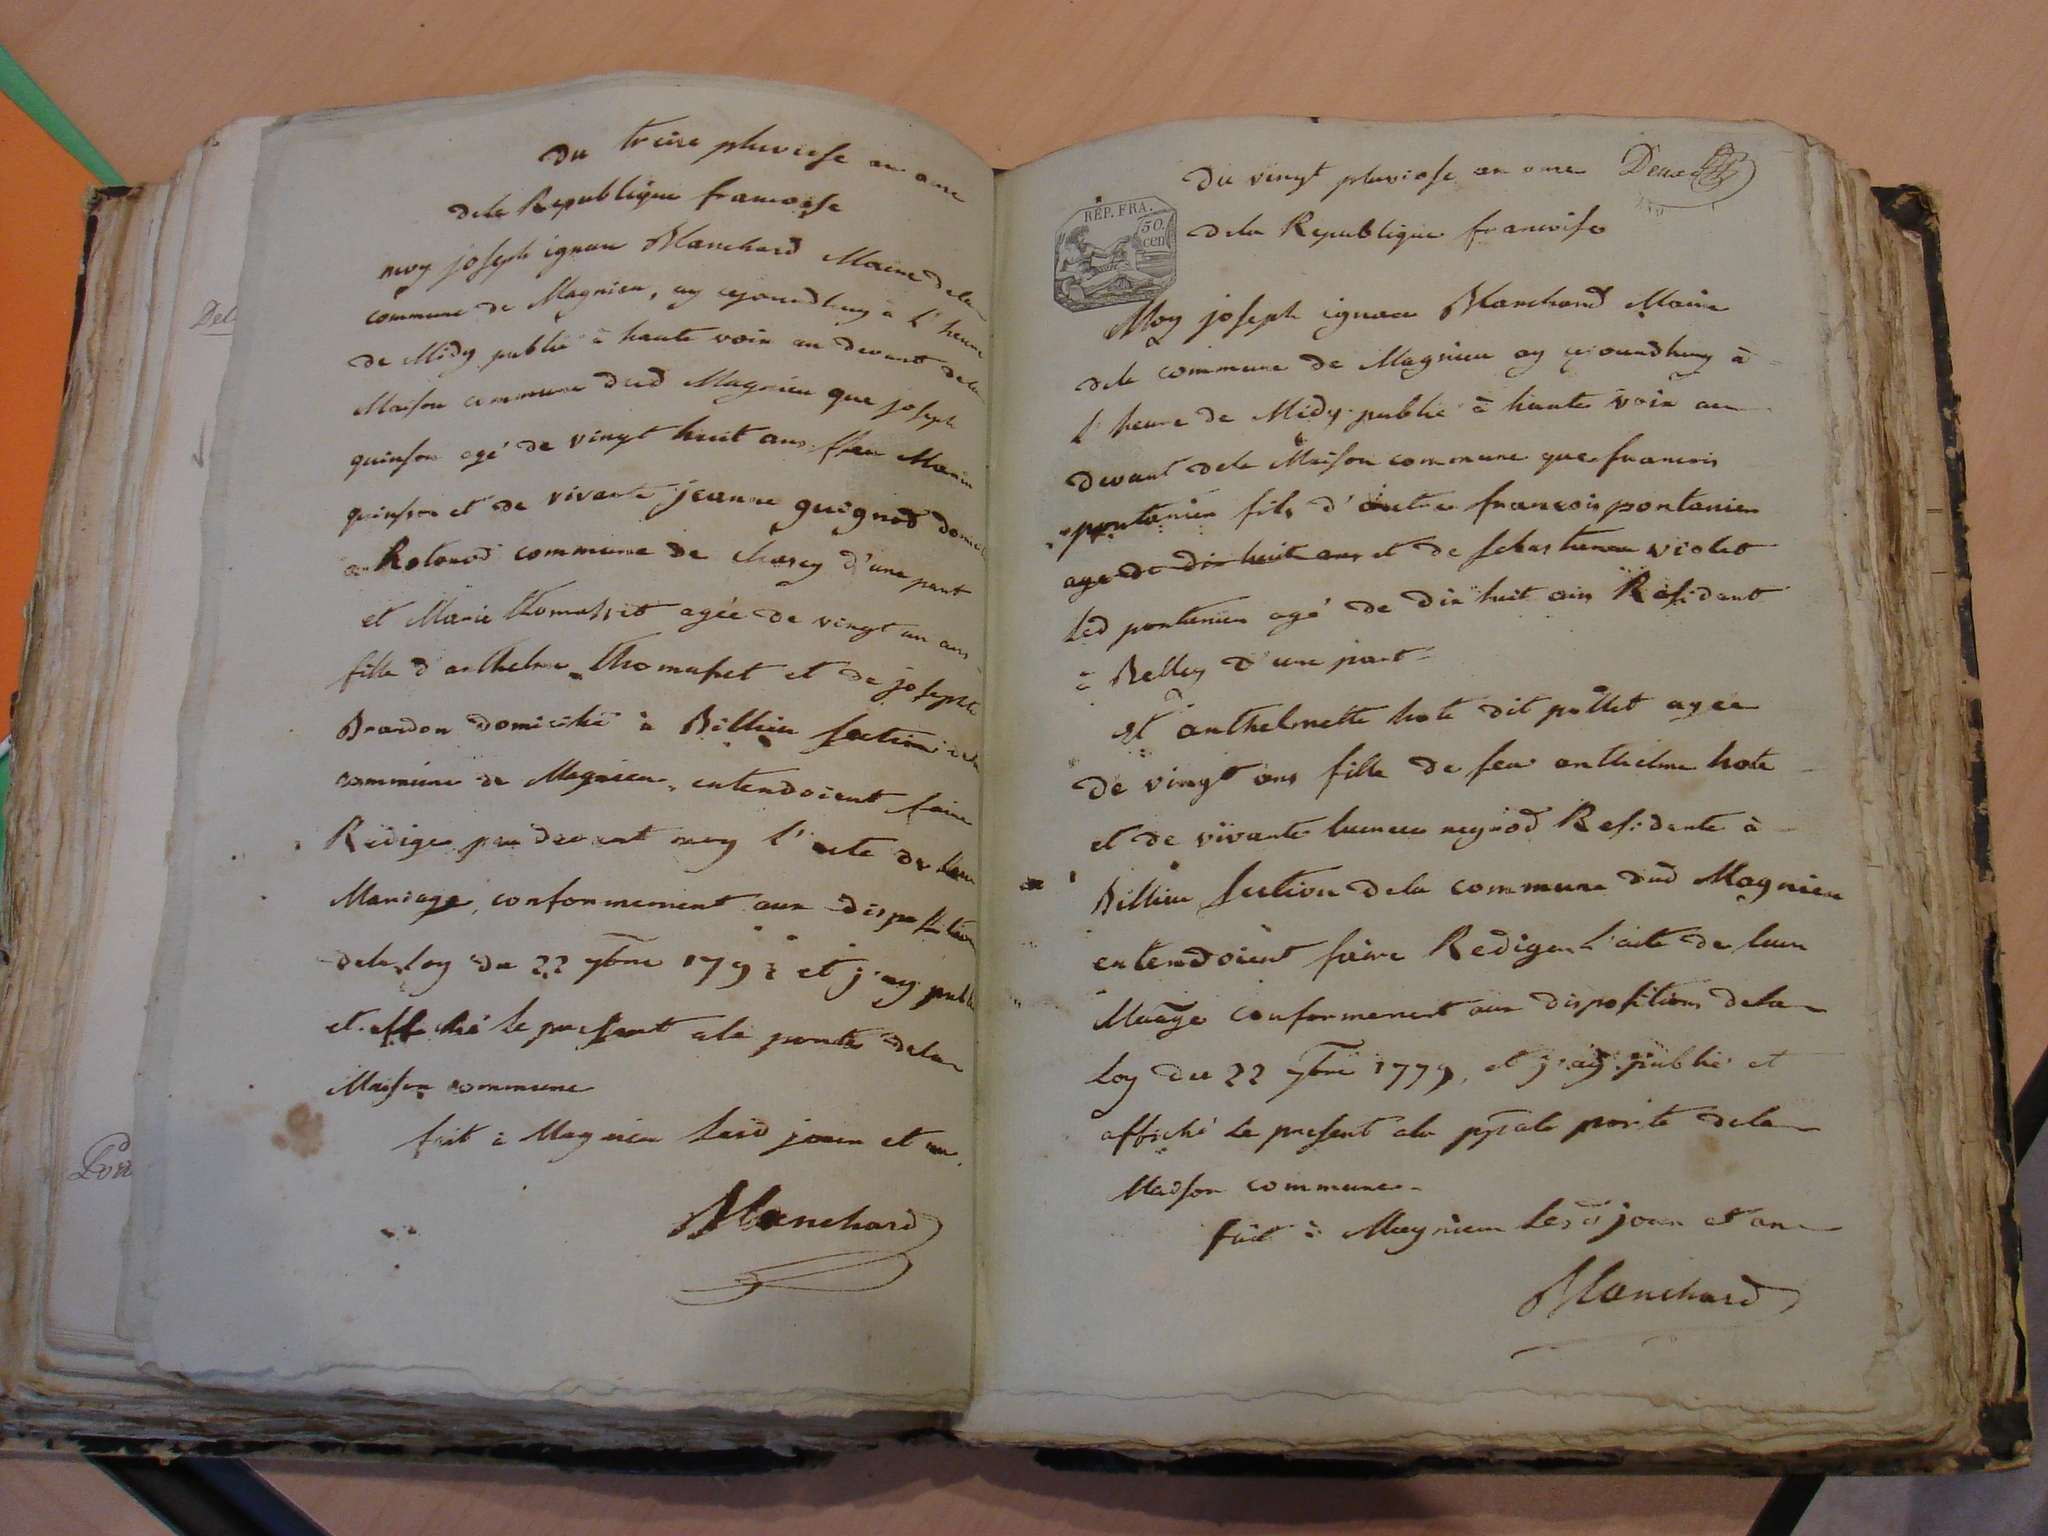 Du treize pluviose an onze
dela Republique francoise
moy joseph ignace Blanchard Maire dela
commune de Magnieu, ay cejourdhuy à l'heure
de Midy publié à haute voix au devant dela
Maison commune dud Magnieu que joseph
quinson agé de vingt huit ans feu
quinson et de vivante jeanne guignod
a Rotonod commune de d'une part
et Marie thomasset agée de vingt un ans
fille d'anthelme thomasset et de josephte
Brardon domicilié à Billieu section dela
commune de Magnieu, entendoient faire
Rediger pardevant moy l'acte de leur
Mariage, conformement aux disposition
dela loy du 22 7bre 1792 et j'ay publié
et affiché le present ala porte dela
Maison commune
fait à Magnieu lesd jour et an.
Blanchard
Du vingt pluviose an onze Deux
RÉP. FRA.
50.
cen
dela Republique francoise
Moy joseph ignace Blanchard Maire
dela commune de Magnieu ay cejourdhuy à
l'heure de Midy publié à haute voix au
devant dela Maison commune que francois
pontanier fils d'autre francois pontanier
age de dix huit ans et de violet
led pontanier agé de dix huit ans Residant
à Belley d'une part
et anthelmette hote dit pollet agée
de vingt ans fille de feu anthelme hote
et de vivante neyrod Residente à
Billieu section dela commune dud Magnieu
entendoient faire Rediger l'acte de leur
Maage conformement aux dispositions dela
loy du 22 7bre 1779, et j'ay publié et
affiché le present ala ppale porte dela
Maison commune
fait à Magnieu lesd jour et an
Blanchard
Del
Pon